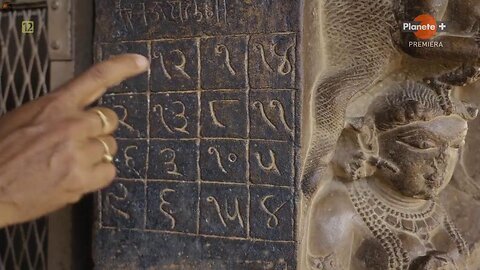 12
Planete+
PREMIERA
१२ १ १४
२ १३ ८ ११
१६ ३ १० ५
९ ६ १५ ४